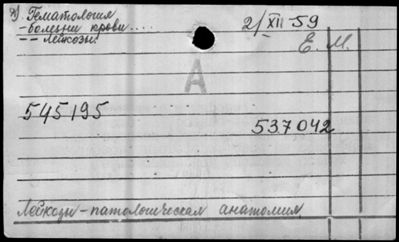 я) Гематология
- болезни крови....
- - лейкозы.
2/XII-59
Е. М.
А
545195
537042
Лейкозы-патологическая анатомия